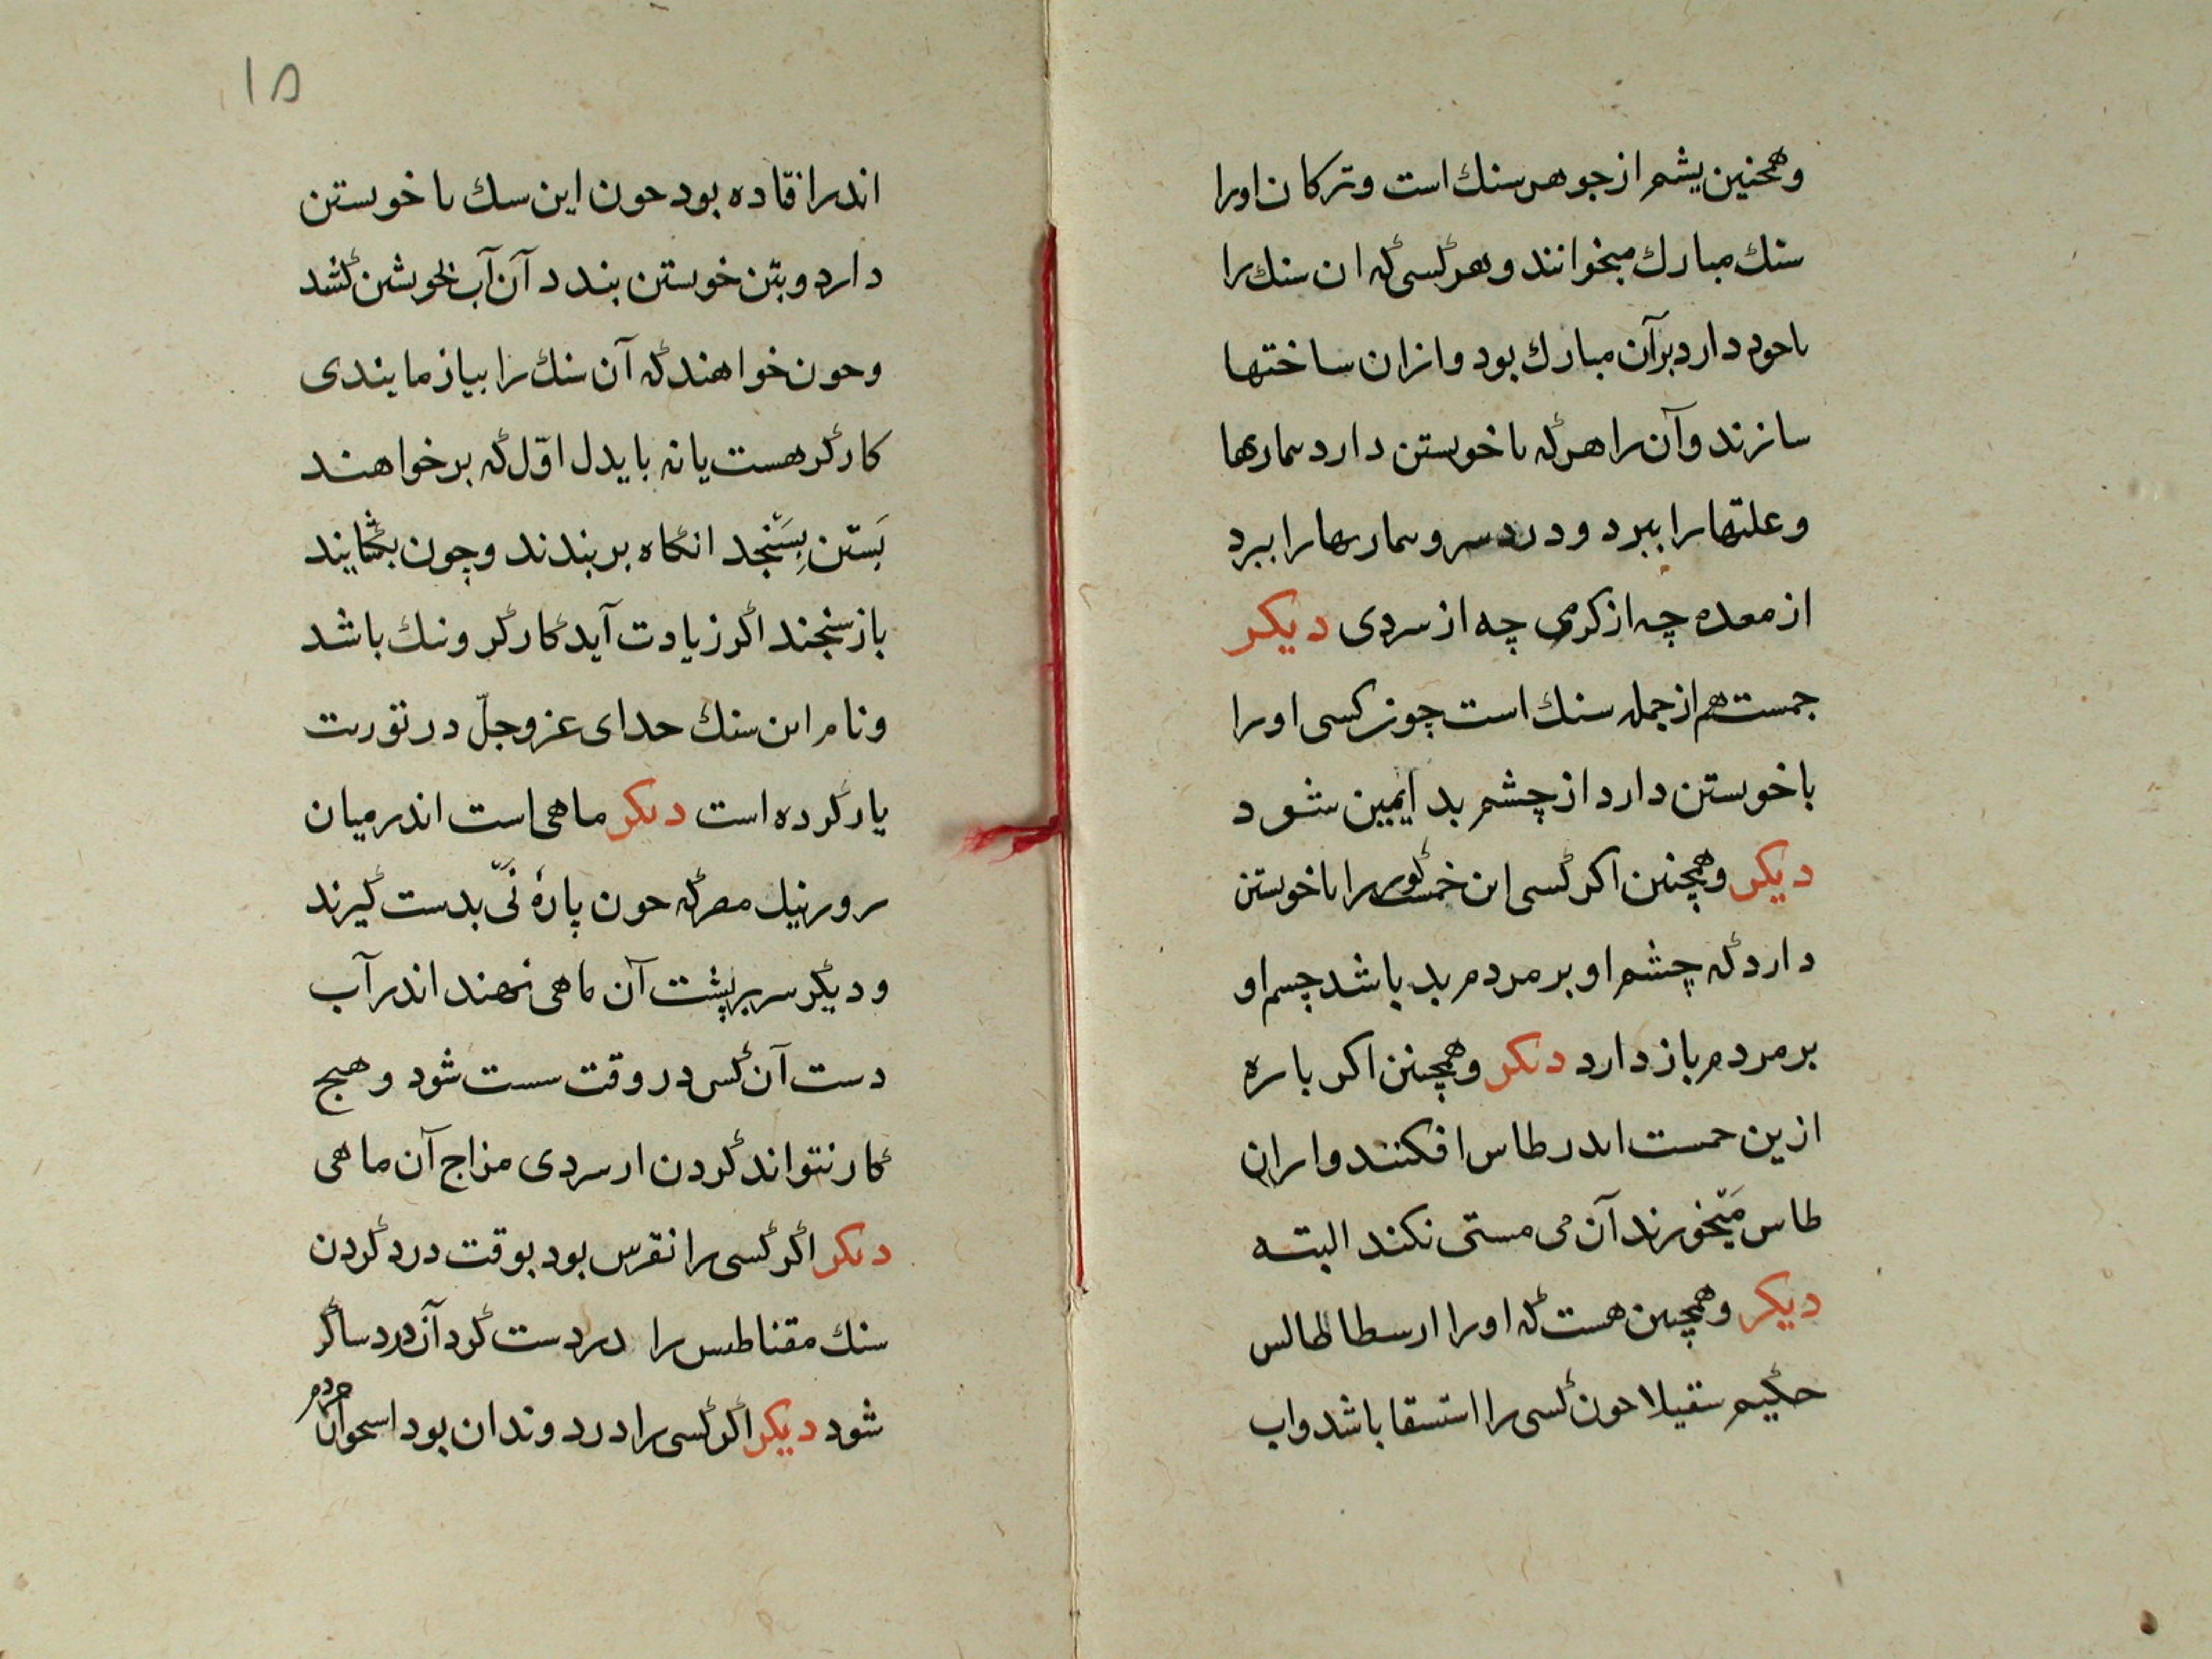 وهمچنین یشم از جوهر سنك است و تركان اورا
سنك مبارك میخوانند وهر كسی كه ان سنك را
باخود دارد برآن مبارك بود وازان ساختها
سازند وآن را هركه باخویستن دارد بماریها
وعلتها را ببرد ودرد سر وبماریها را ببرد
از معده چه از كرمی چه از سردی دیكر
جمست هم از جمله سنك است چون كسی اورا
باخویستن دارد از چشم بد ایمین شود
دیكر وهمچنین اكر كسی این را باخویستن
دارد كه چشم او بر مردم بد باشد چسم او
بر مردم باز دارد دیكر وهمچنین اكر باره
ازین حمست اندر طاس افكنند وازان
طاس می‌خورند آن می مستی نكند البته
دیكر وهمچنین هست كه اورا ارسطاطالس
حكیم سقیلا خون كسی را استسقا باشد واب
۱۵
اندر افتاده بود حون این سنك با خویستن
دارد وبتن خویستن بندد آن آب بخویشن كشد
وحون خواهند كه آن سنك را بیازمایندی
كاركر هست یا نه باید اول كه برخواهند
بَستن بِسَنجد انكاه بر بندند وچون بكشایند
باز سنجند اكر زیادت آید كاركر ونیك باشد
ونام این سنك خدای عز وجلّ در توریت
یاد كرده است دیكر ماهی است اندر میان
رور نیل مصر كه حون پارهٔ نَیّ بدست كیرند
ودیكر سر بر پشت آن ماهی نهند اندر آب
دست آن كس در وقت سست شود وهیج
كار نتواند كردن از سردی مزاج آن ماهی
دیكر اكر كسی را نقرس بود بوقت درد كردن
سنك مقناطیس را در دست كرد آن درد ساكر
شود دیكر اكر كسی را درد وندان بود اسحوان مردم